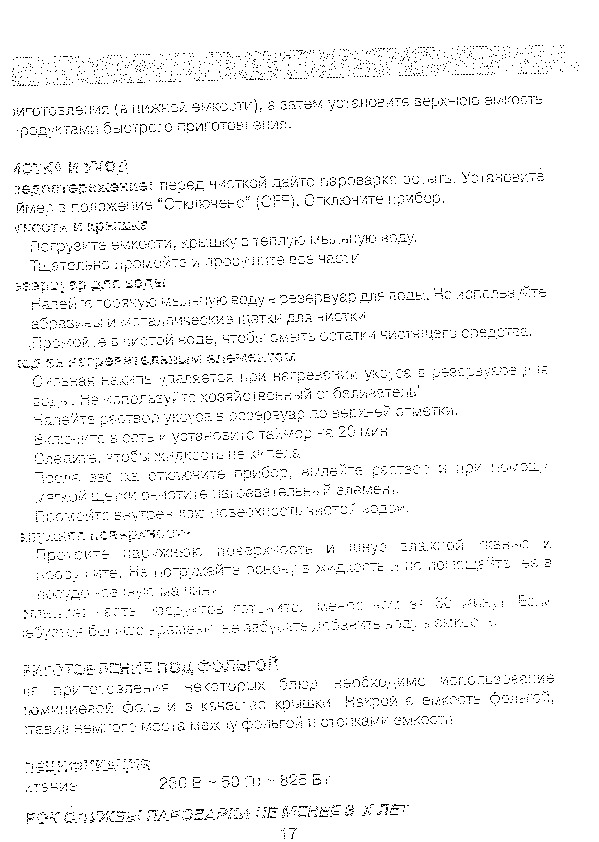 приготовления (в нижней емкости), а затем установите верхнюю емкость
продуктами быстрого приготовления.
ИСТКА И УХОД
редостережение: перед чисткой дайте пароварке остыть. Установите
ймер в положение "Отключено" (OFF). Отключите прибор.
мкости и крышка
Погрузите емкости, крышку в теплую мыльную воду.
Тщательно промойте и просушите все части
езервуар для воды
Налейте горячую мыльную воду в резервуар для воды. Не используйте
абразивы и металлические щетки для чистки
Промойте в чистой воде, чтобы смыть остатки чистящего средства.
нагревательным элементом
Сильная накипь удаляется при нагревании уксуса в резервуаре для
воды. Не используйте хозяйственный отбеливатель!
Налейте раствор уксуса в резервуар до верхней отметки.
Включите в сеть и установите таймер на 20 мин
Следите, чтобы жидкость не кипела
После отключите прибор, вылейте раствор и при помощи
мягкой щетки очистите нагревательный элемент.
Промойте внутреннюю поверхность чистой водой.
поверхность
Протрите наружную поверхность и шнур влажной тканью и
просушите. Не погружайте основу в жидкость и не помещайте ее в
посудомоечную машину
часть продуктов готовится менее чем за 60 минут. Если
требуется больше времени, не забудьте добавить воду в емкость.
РИГОТОВЛЕНИЕ ПОД ФОЛЬГОЙ
ля приготовления некоторых блюд необходимо использование
люминиевой фольги в качестве крышки. Накройте емкость фольгой,
ставив немного места между фольгой и стенками емкости.
ПЕЦИФИКАЦИЯ
итание 230 В ~ 50 Гц ~ 825 Вт
РОК СЛУЖБЫ ПАРОВАРКИ НЕ МЕНЕЕ 3-Х ЛЕТ
17